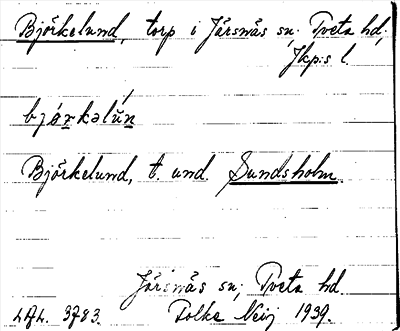 Björkelund, torp i Järsnäs sn; Tveta hd;
Jkp:s l.
björkəlún
Björkelund, t. und. Sundsholm.
Järsnäs sn; Tveta hd
3783. Folke Neij 1939.